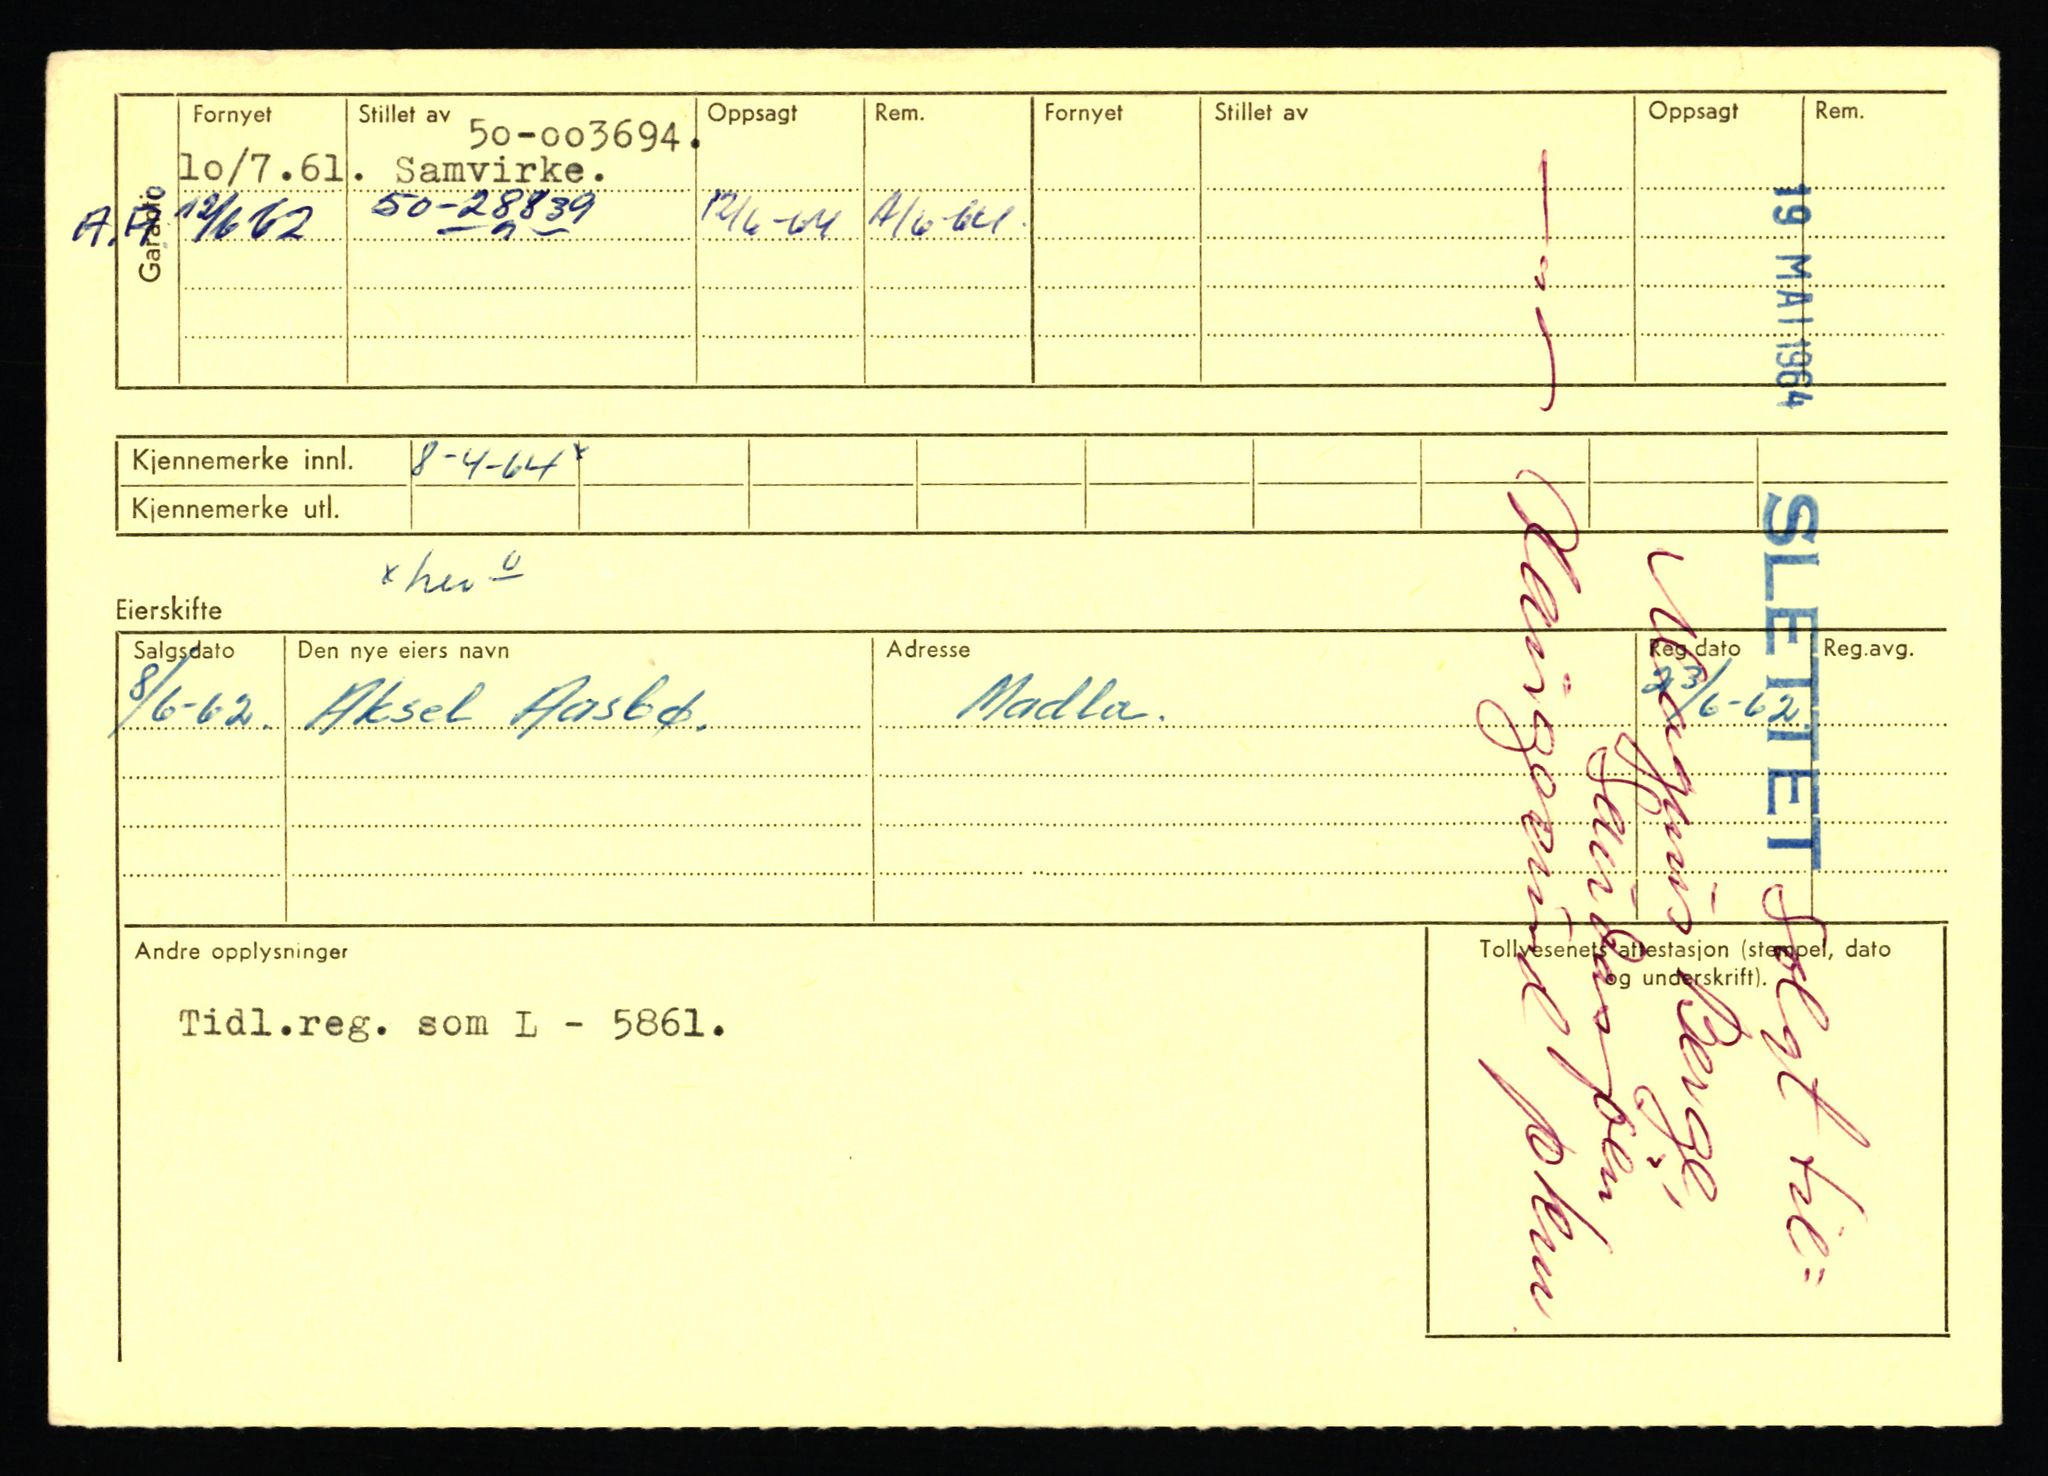 Garantio
Fornyet Stillet av Oppsagt Rem. Fornyet Stillet av Oppsagt Rem.
50-003694.
lo/7.61. Samvirke.
A.A. 12/6 62 50-28839 12/6-64 A/6-64.
Kjennemerke innl. 8-4-64 x
Kjennemerke utl.
x
Eierskifte
Salgsdato Den nye eiers navn Adresse Reg.dato Reg.avg.
8/6-62. Aksel Aasbø. Madla. 23/6-62.
Andre opplysninger
Tidl.reg. som L - 5861.
Tollvesenets attestasjon (stempel, dato
og underskrift).
19 MAI 1964
SLETTET Solgt til:
Magnus Berge,